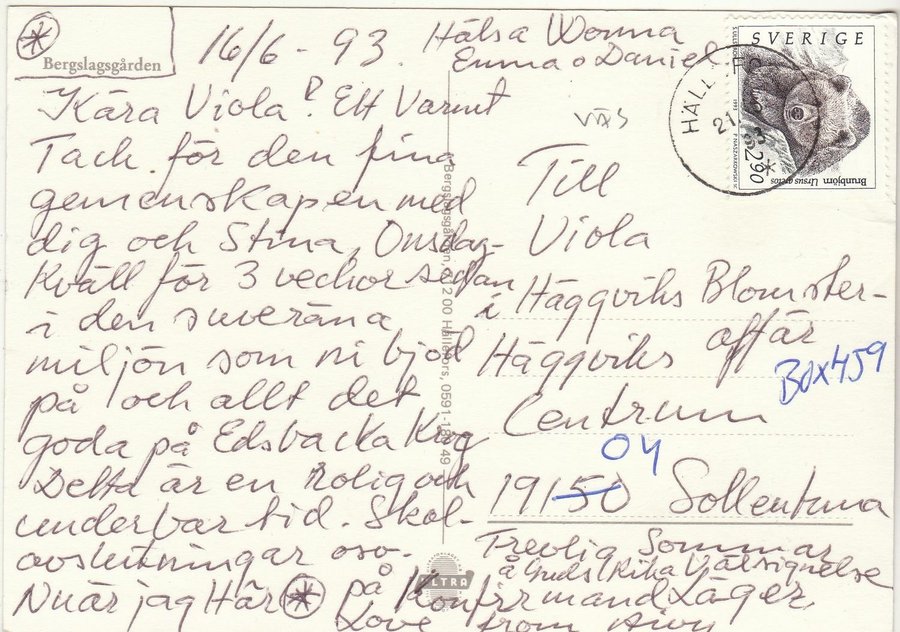 Bergslagsgården
16/6-93 Hälsa Monna
Emma o Daniel
Kära Viola! Ett Varmt
Tack för den fina
gemenskapen med
dig och Stina, Onsdag-
Kväll för 3 veckor sedan
i den suveräna
miljön som ni bjöd
på och allt det
goda på Edsbacka Krog
Detta är en Rolig och
underbar tid. Skol-
avslutningar osv.
Nu är jag Här på Konfirmand Läger
Trevlig Sommar
å Guds Rika Välsignelse
Love from
Bergslagsgården, 712 00 Hällefors, 0591-18 49
ULTRA
SVERIGE
1993
2.90
Brunbjörn Ursus arctos
HÄLLEFO
21
Till
Viola
i Häggviks Blomster-
affär
Häggviks
Centrum
Box 459
04
19150 Sollentuna